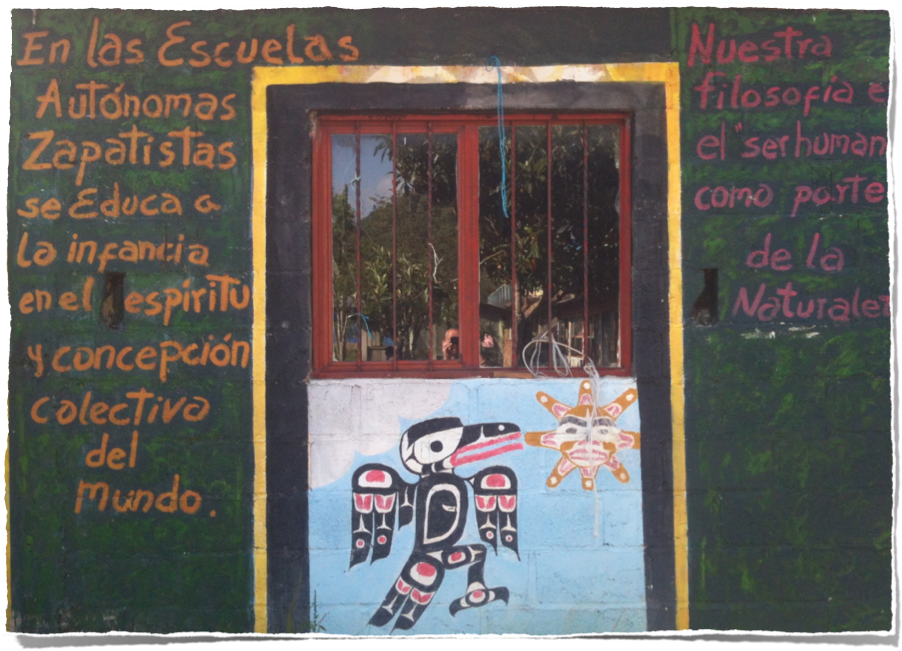 En las Escuelas
Autónomas
Zapatistas
se Educa a
la infancia
en el espíritu
y concepción
colectiva
del
mundo.
Nuestra
filosofía e
el "ser human
como parte
de la
Naturalez